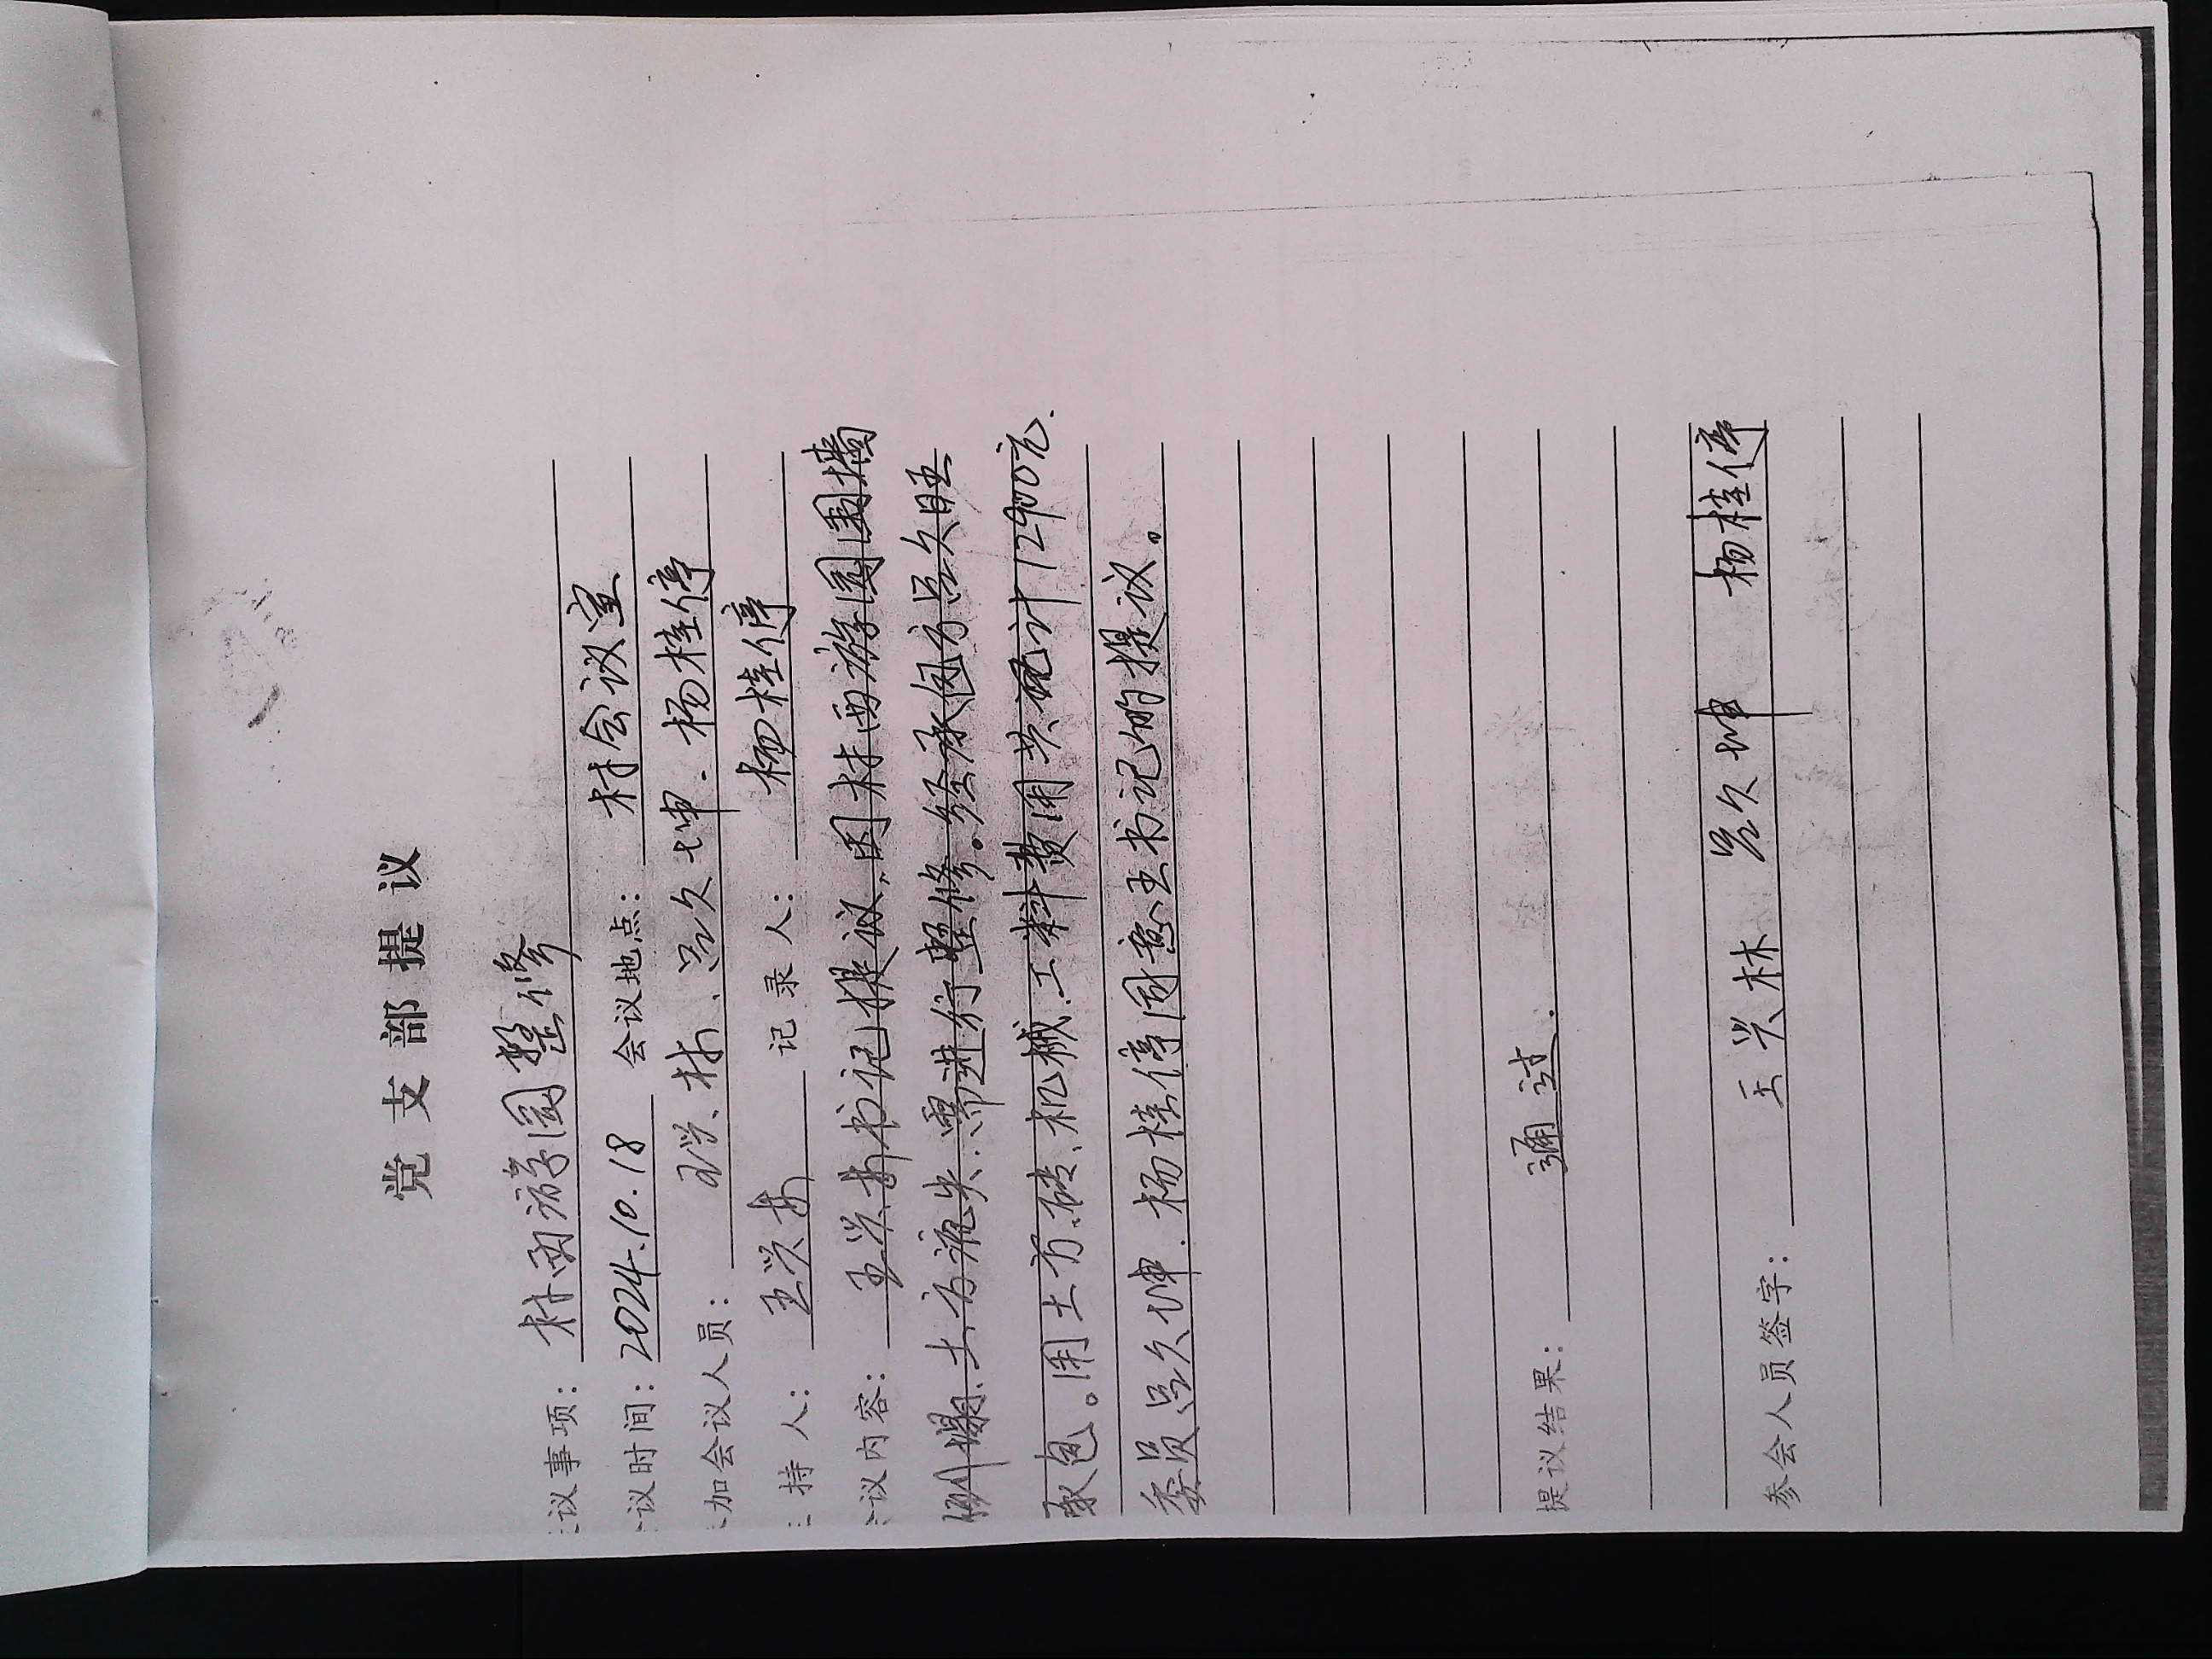 党支部提议
议事项：村西游园整修
议时间：2024.10.18 会议地点：村会议室
加会议人员：王兴林、吕久坤、杨桂停
持人：王兴林 记录人：杨桂停
议内容：王兴林书记提议，因村西游园围墙
倒塌、土方流失、需进行整修。经承包方吕久
承包。用土方、砖、机械、工料费用共计12900元.
委员吕久坤、杨桂停同意王书记的提议。
提议结果：通过.
参会人员签字：王兴林 吕久坤 杨桂停